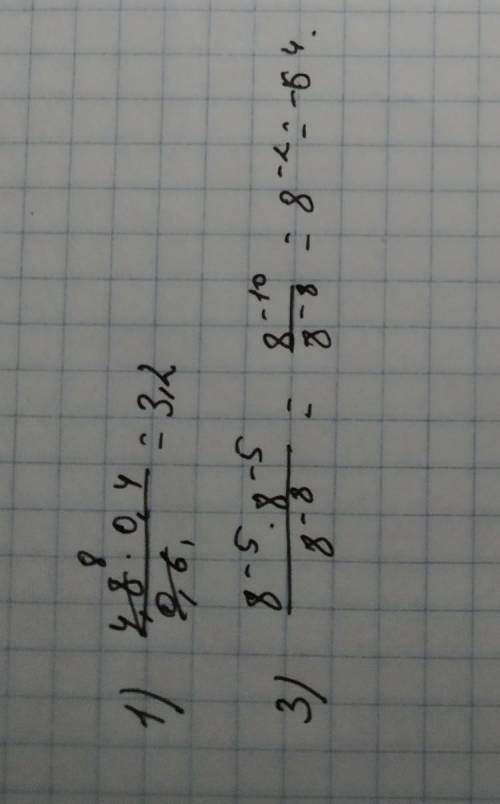 1) 4,8 · 0,4 / 0,6 = 3,2
8
3) 8^-5 · 8^-5 / 8^-8 = 8^-10 / 8^-8 = 8^-2 = -64.